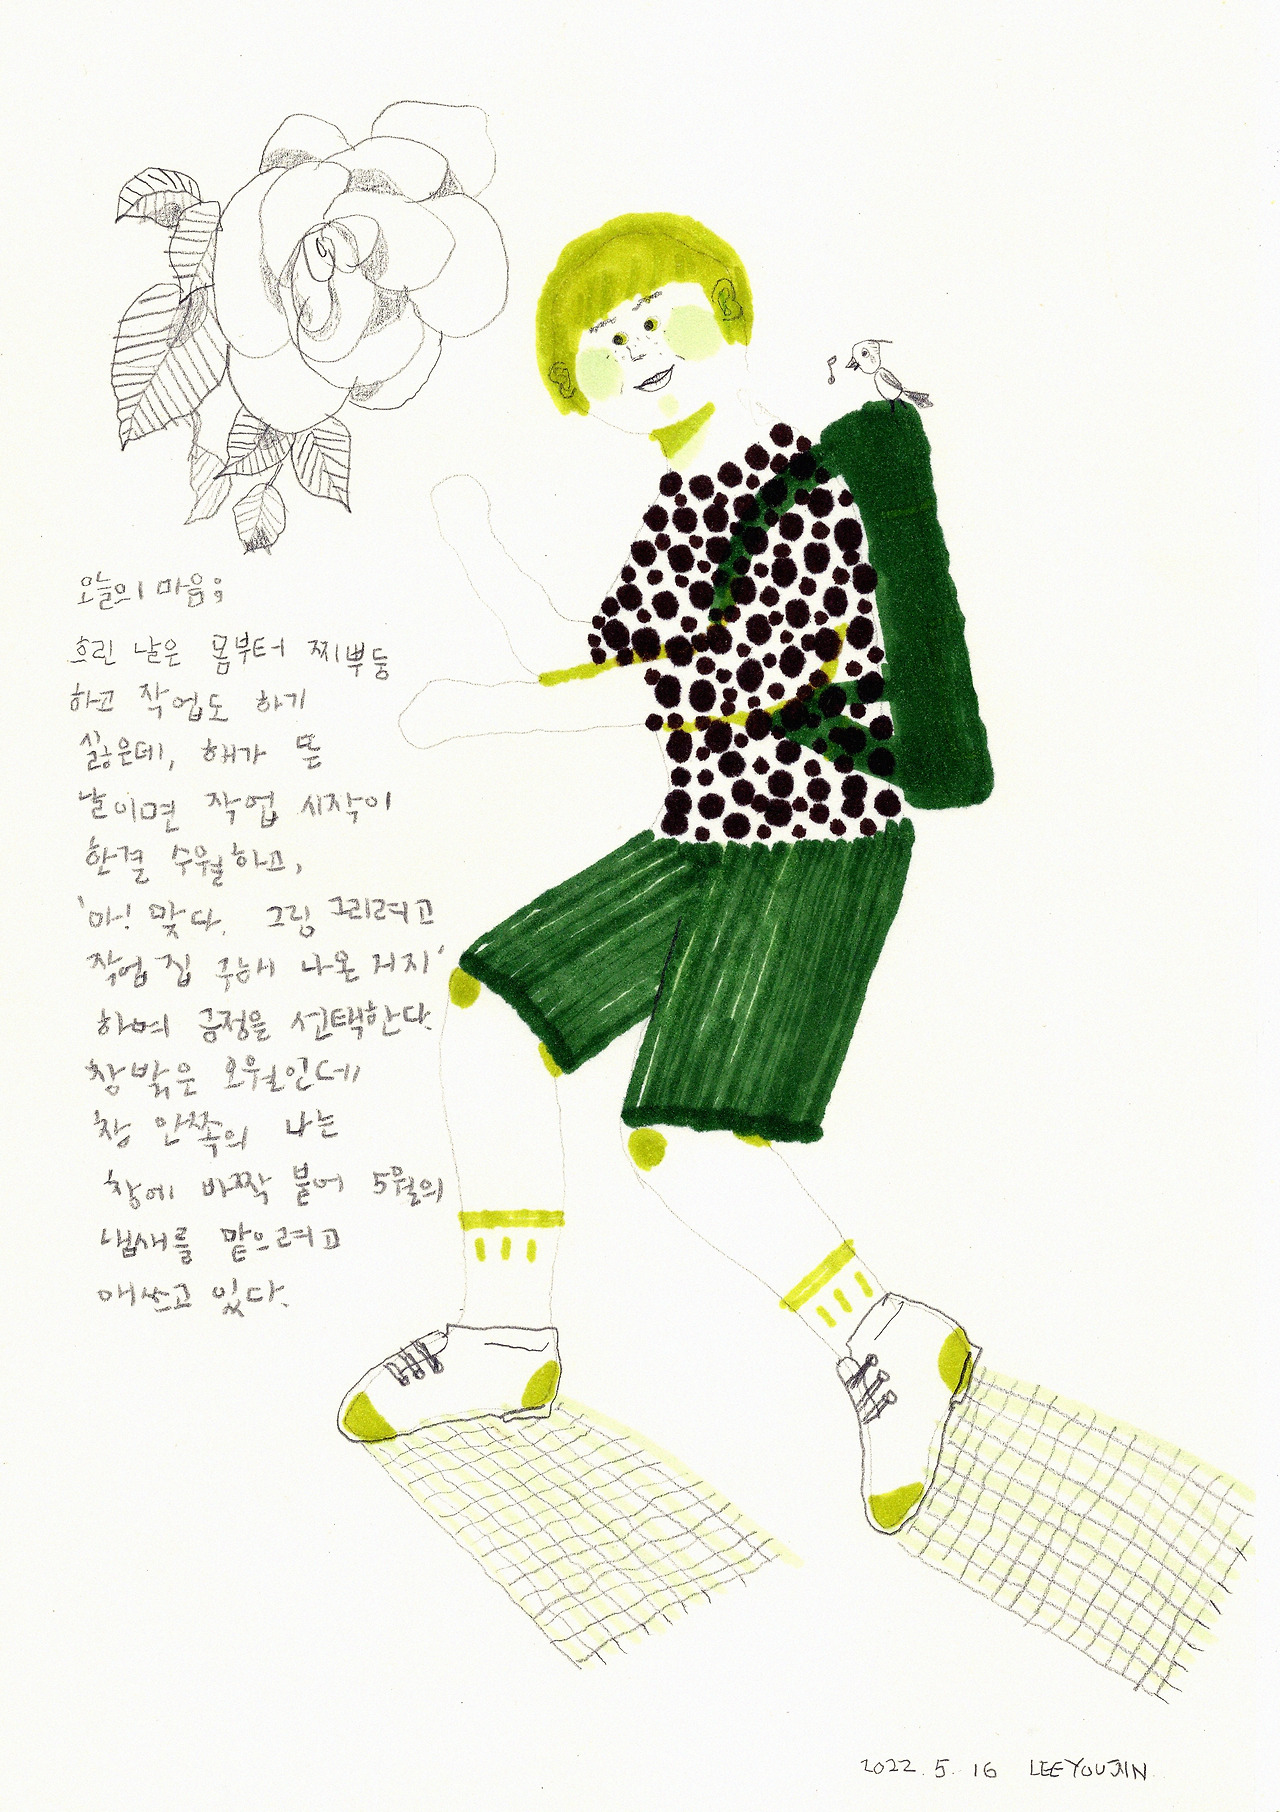 오늘의 마음;
흐린 날은 몸부터 찌뿌둥
하고 작업도 하기
싫은데, 해가 뜬
날이면 작업 시작이
한결 수월하고,
'아! 맞다. 그림 그리려고
작업집 구해서 나온거지'
하며 긍정을 선택한다.
창밖은 오월인데
창 안쪽의 나는
창에 바짝 붙어 5월의
냄새를 맡으려고
애쓰고 있다.
2022. 5. 16 LEEYOUJIN